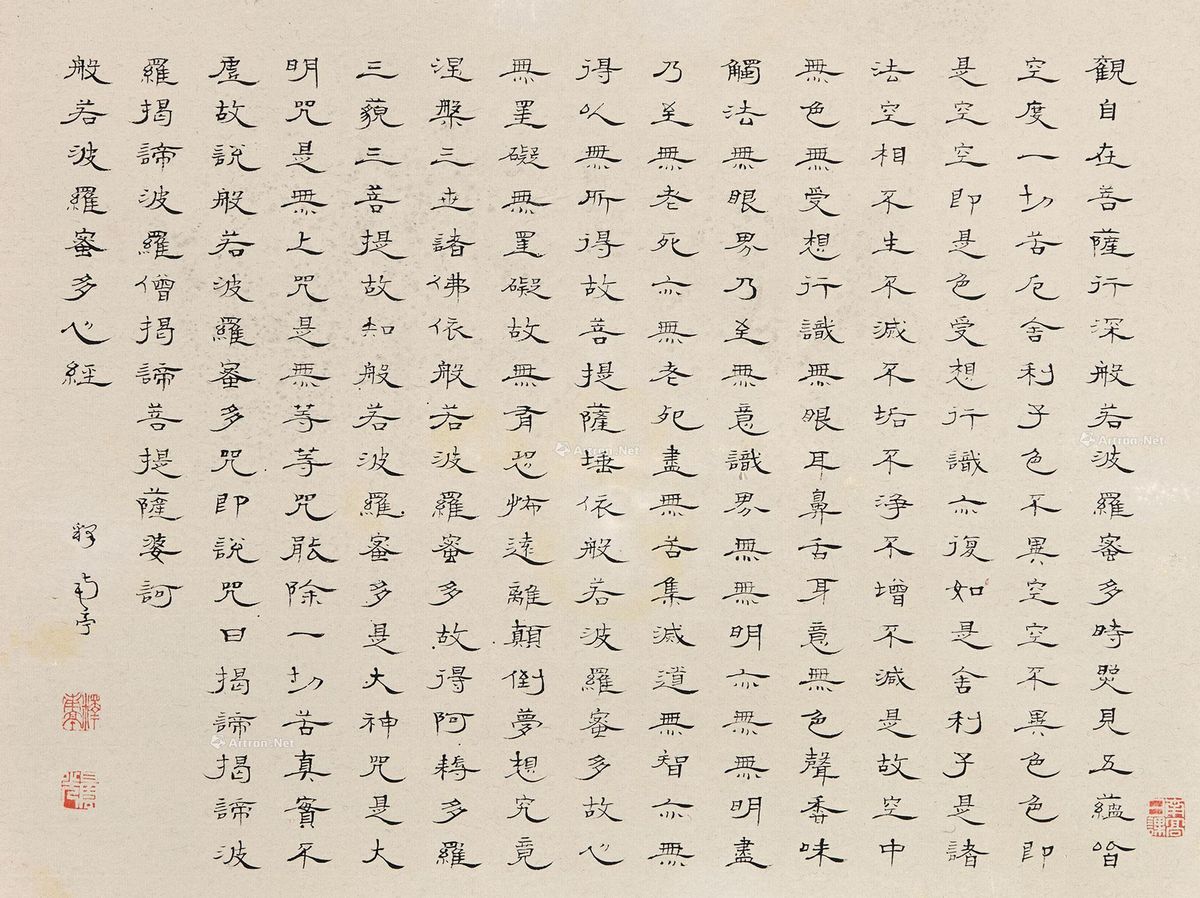 觀自在菩薩行深般若波羅蜜多時照見五蘊皆
空度一切苦厄舍利子色不異空空不異色色即
是空空即是色受想行識亦復如是舍利子是諸
法空相不生不滅不垢不淨不增不減是故空中
無色無受想行識無眼耳鼻舌身意無色聲香味
觸法無眼界乃至無意識界無無明亦無無明盡
乃至無老死亦無老死盡無苦集滅道無智亦無
得以無所得故菩提薩埵依般若波羅蜜多故心
無罣礙無罣礙故無有恐怖遠離顛倒夢想究竟
涅槃三世諸佛依般若波羅蜜多故得阿耨多羅
三藐三菩提故知般若波羅蜜多是大神咒是大
明咒是無上咒是無等等咒能除一切苦真實不
虛故說般若波羅蜜多咒即說咒曰揭諦揭諦波
羅揭諦波羅僧揭諦菩提薩婆訶
般若波羅蜜多心經
釋南亭
Artron.Net
Artron.Net
Artron.Net